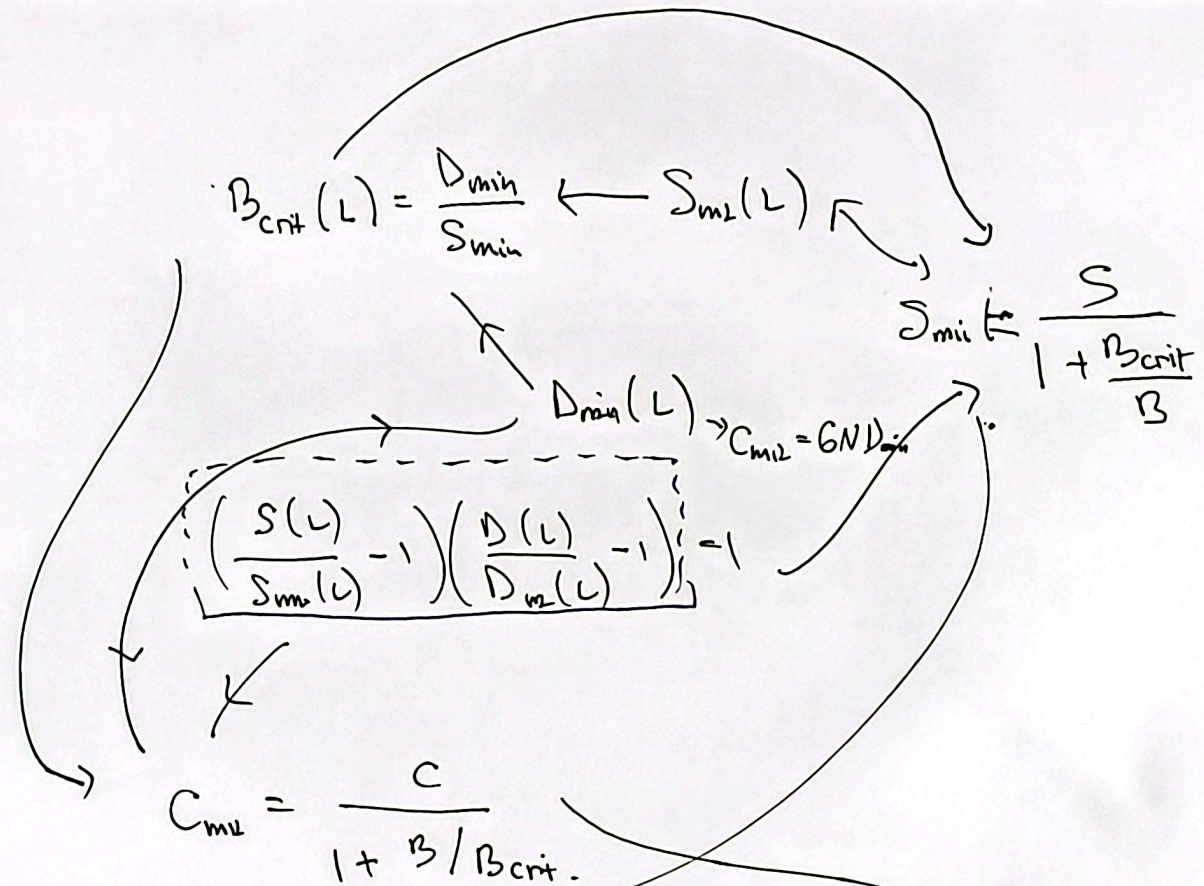 B_crit (L) = D_min / S_min ← S_min (L)
S_min = S / (1 + B_crit / B)
D_min (L) → C_min = 6 N D_min
(S(L) / S_min(L) - 1) (D(L) / D_min(L) - 1) = 1
C_min = C / (1 + B / B_crit).